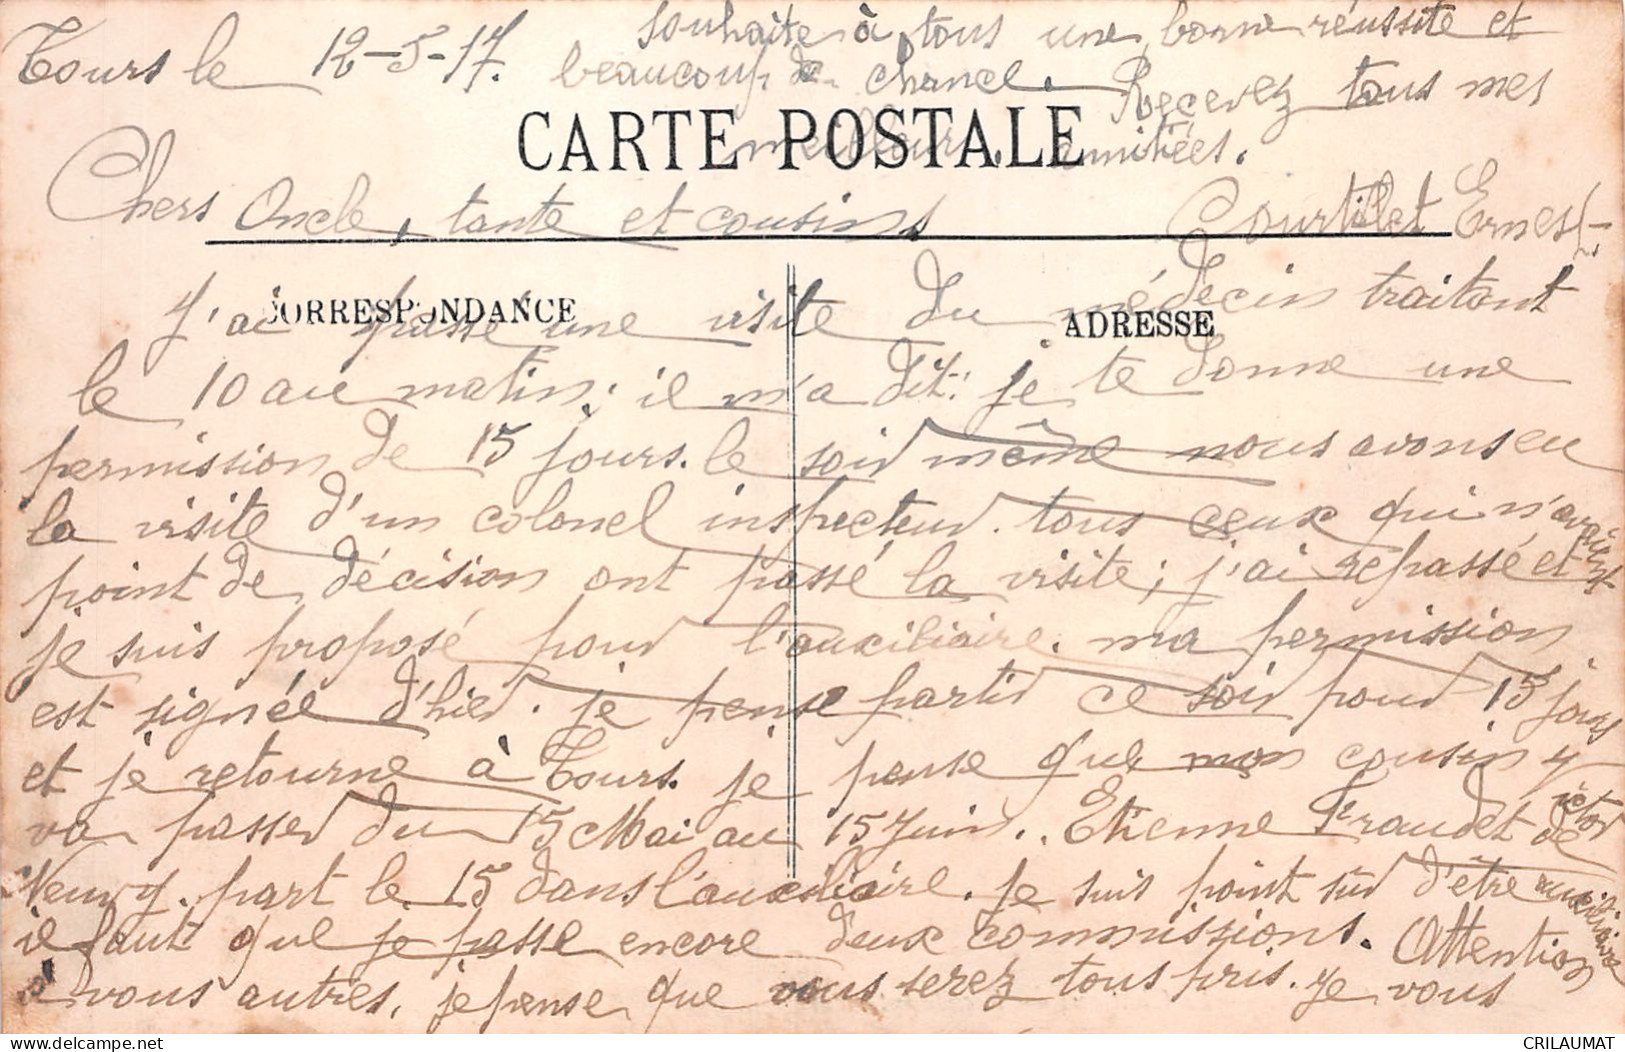 Tours le 12-5-17.
CARTE POSTALE
Chers Oncle, tante et cousins
CORRESPONDANCE
ADRESSE
J'ai passé une visite du médecin traitant
le 10 au matin; il m'a dit: je te donne une
permission de 15 jours. le soir même nous avons eu
la visite d'un colonel inspecteur. tous ceux qui n'avaient
point de décision ont passé la visite; j'ai repassé et
je suis proposé pour l'auxiliaire. ma permission
est signée d'hier. je pense partir ce soir pour 15 jours
et je retourne à Tours. je pense que mon cousin Victor
va passer du 15 Mai au 15 Juin. Etienne Fraudet de
Neuvy. part le 15 dans l'auxiliaire. je suis point sûr d'être auxiliaire
il faut que je passe encore deux commissions. Attention
à vous autres, je pense que vous serez tous pris. Je vous
souhaite à tous une bonne réussite et
beaucoup de chance. Recevez tous mes
meilleurs amitiées.
Courtillet Ernest
CRILAUMAT